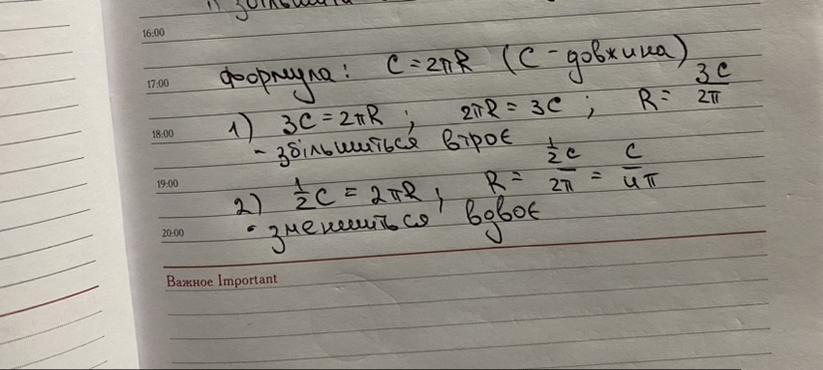 1) збільшити
16:00
Формула: C = 2πR (C - довжина)
17:00
1) 3C = 2πR ; 2πR = 3C ; R = 3C/2π
18:00
- збільшиться втроє
19:00
2) ½C = 2πR ; R = ½C/2π = C/4π
- зменшиться вдвоє
20:00
Важное Important